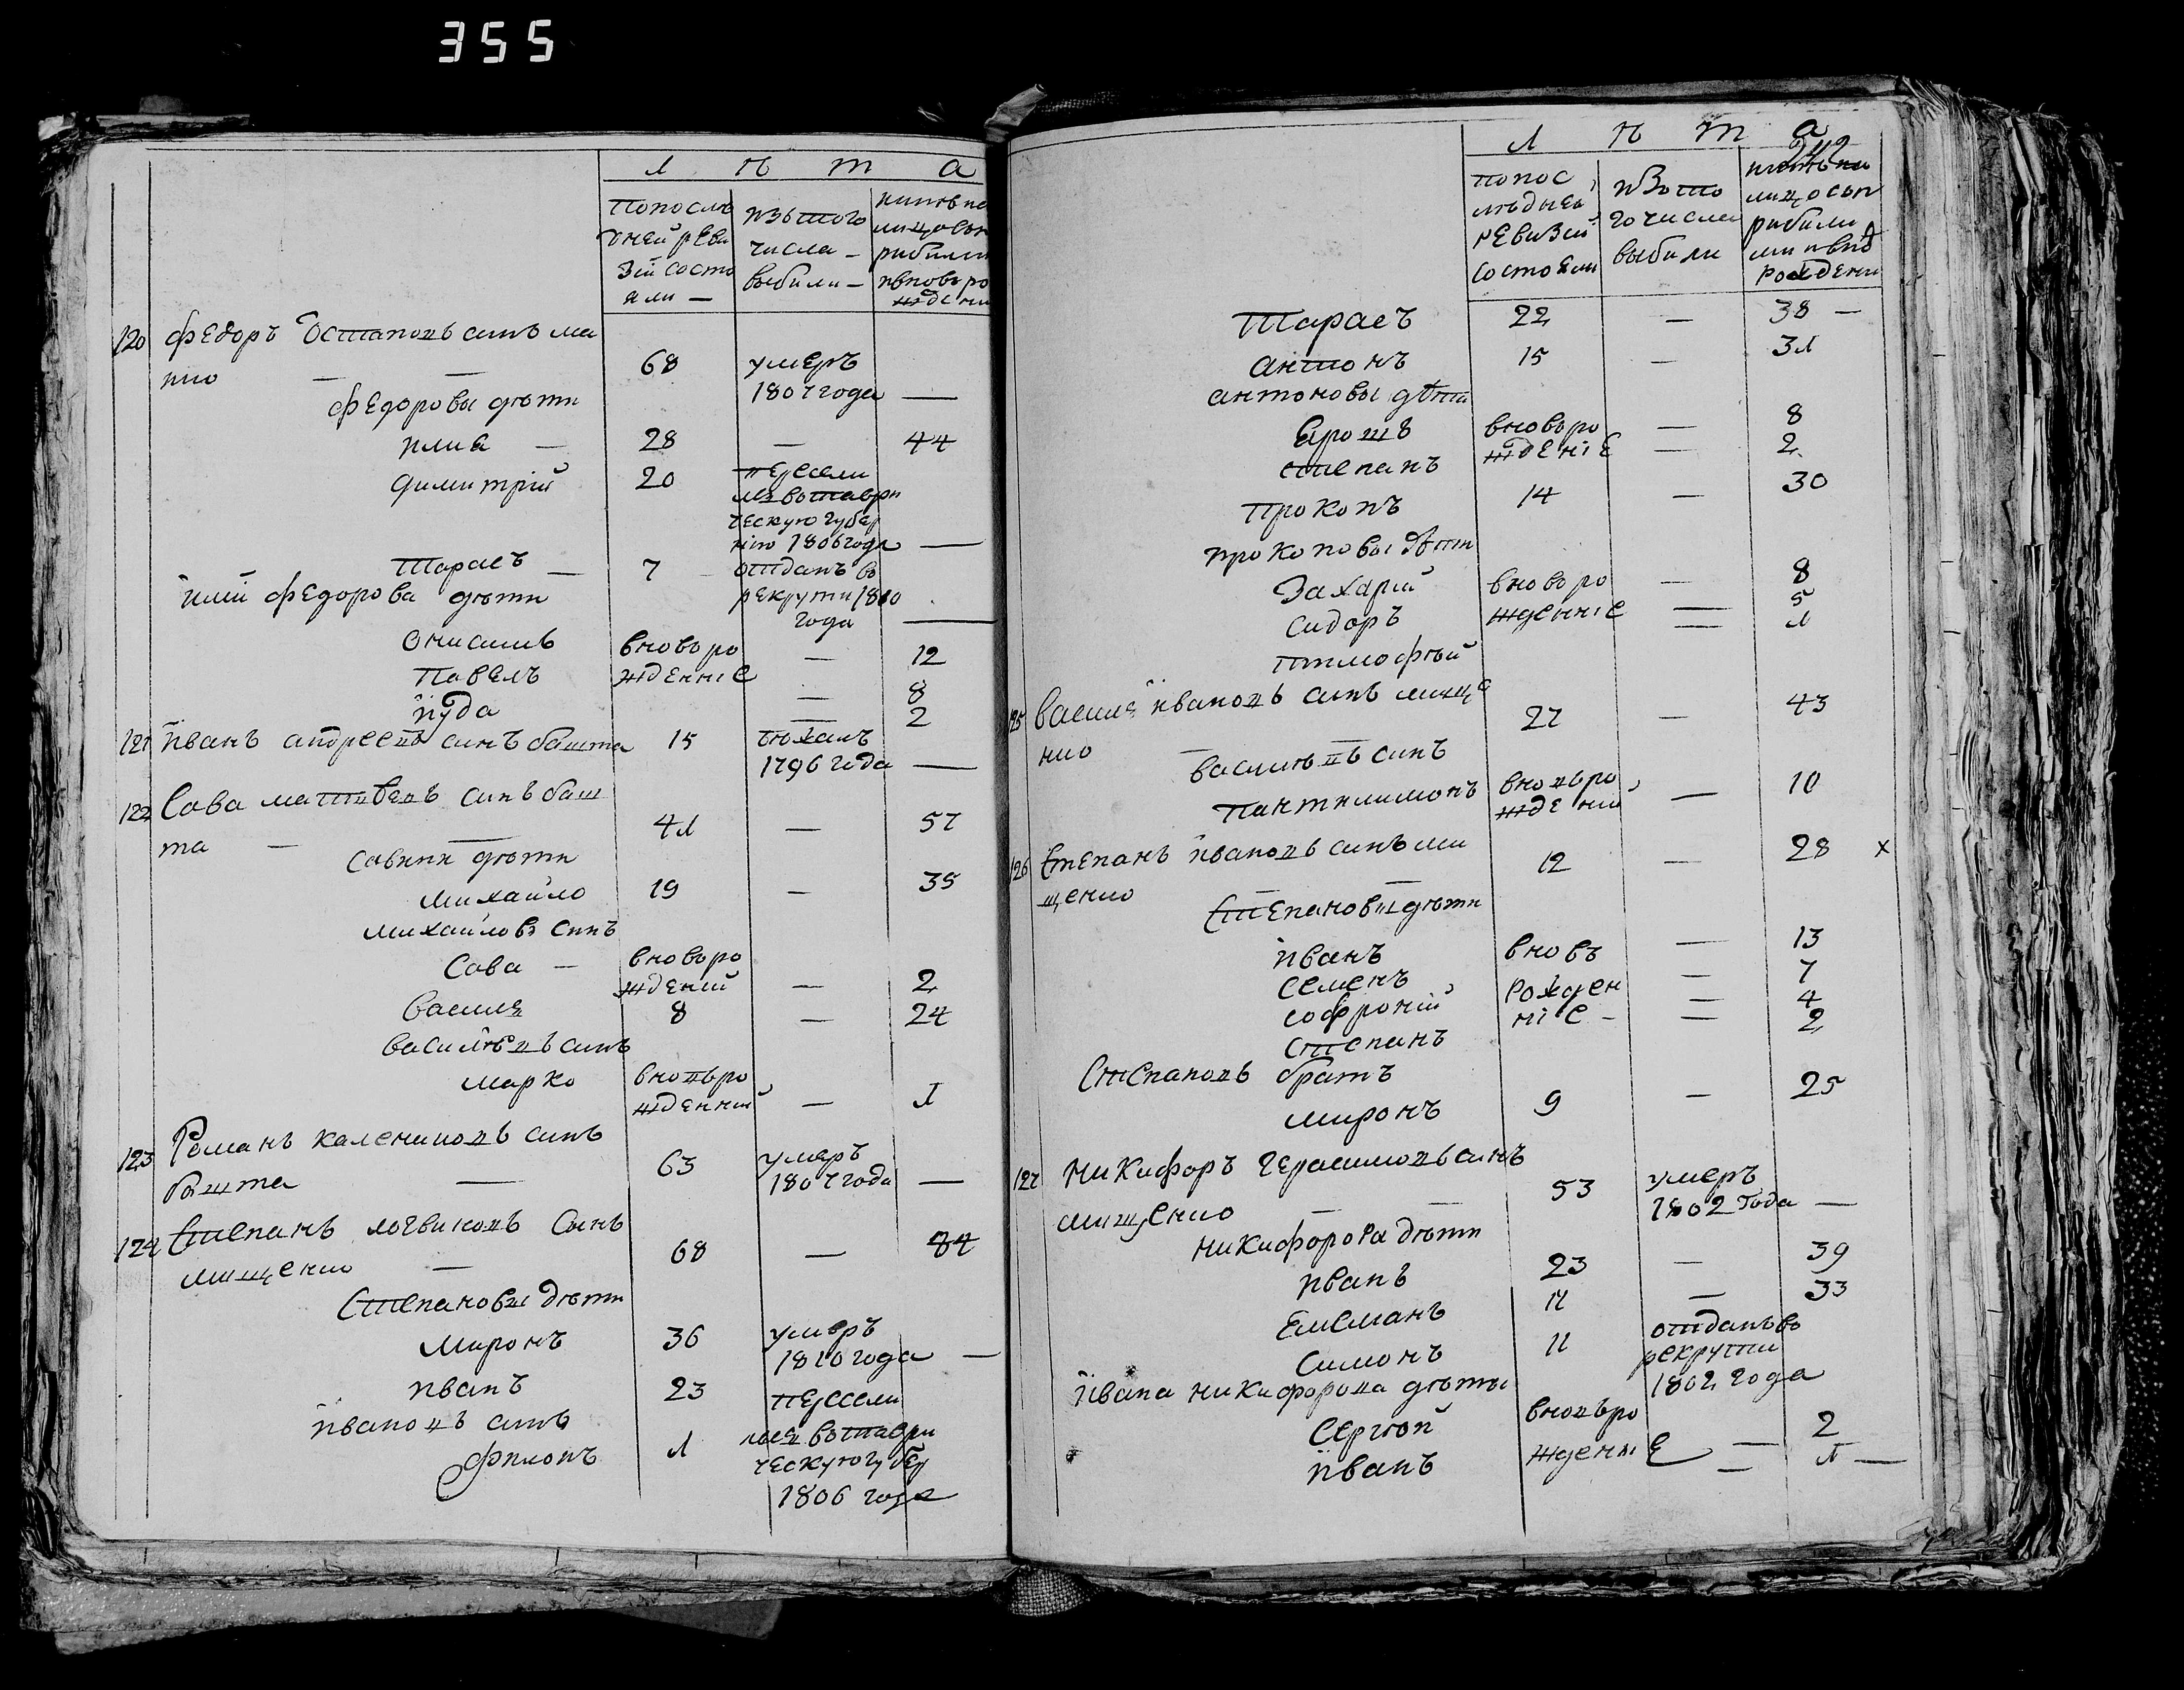 355
Л ѣ т а
По послѣ
дней реви
зіи состо
яли —
изътого
числа —
выбили —
ивновъро
120 Федоръ Остаповъ синъ ма
68 умеръ
1807 года —
Федоровы дѣти
илия — 28 — 44
димитрій 20 пересели
лся вотаври
ческую губер
нію 1806 года —
Тарасъ — 7 отданъ во
рекрути 1810
года —
Федорова дѣти
Онисимъ вновъро — 12
Павелъ жденніе — 8
іуда — 2
121 иванъ андреевъ синъ башта 15
1796 года —
122 Сава матвѣевъ синъ баш
та — 41 — 57
савини дѣти
михайло 19 — 35
михайловъ синъ
Сава — вновъро
ждений — 2
василя 8 — 24
василіевъ синъ
марко вновъро
жденний — 1
123 Романъ калениковъ синъ
башта — 63 умеръ
1807 года —
124 Степанъ логвиновъ Синъ
мищенко — 68 — 84
Степановы дѣти
Миронъ 36 умеръ
1810 года —
иванъ 23 пересели
ивановъ синъ
Филонъ 1 лися вотаври
ческую губер
1806 года
Л ѣ т а
по пос
лѣдней
ревизіи
состояли
изъ то
го числа
выбили
рибили
рождени
Тарасъ 22 — 38 —
антонъ 15 — 31
антоновы дѣти
Ярошъ вновъро — 8
степанъ жденіе — 2
Прокопъ 14 — 30
прокоповы дѣти
Захарій вновъро — 8
сидоръ жденніе — 5
тимофѣй — 1
125 василя ивановъ синъ мище
нко 27 — 43
василіевъ синъ
Пантилимонъ вновъро
ждений — 10
126 Степанъ ивановъ синъ ми
щенко 12 — 28 х
Степановы дѣти
иванъ вновъ — 13
семенъ рожден — 7
софроній ніе — — 4
степанъ — 2
Степановъ братъ
миронъ 9 — 25
127 Никифоръ Герасимовъ синъ
мищенко — — 53 умеръ
1802 года —
никифорова дѣти
иванъ 23 — 39
Емелианъ 17 — 33
Симонъ 11 отданъ во
рекрути
1802 года
ивана никифорова дѣти
Сергѣй вновъро — 2
иванъ жденіе — 1 —